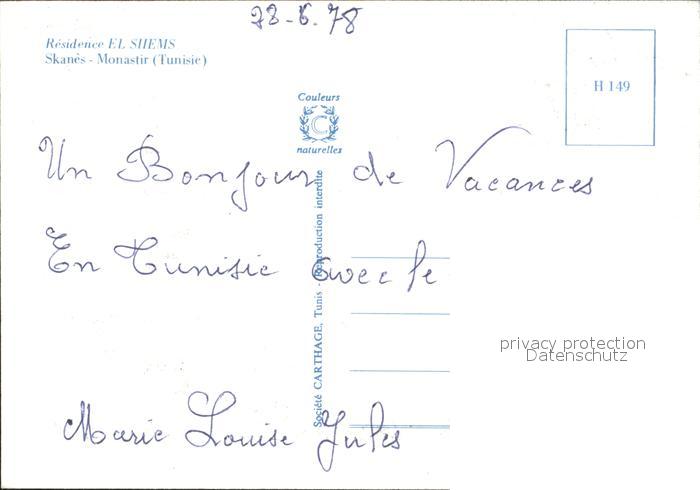 28-6-78
Résidence EL SHEMS
Skanès - Monastir (Tunisie)
H 149
Couleurs
C
naturelles
Un Bonjour de Vacances
En Tunisie avec le
Marie Louise Jules
Société CARTHAGE, Tunis - Reproduction interdite
privacy protection
Datenschutz